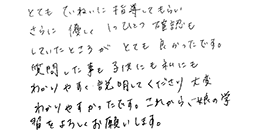 とても ていねいに 指導してもらい
さらに 優しく 1つひとつ 確認も
していたところが とても 良かったです。
質問した事も子供にも私にも
わかりやすく 説明してくださり 大変
わかりやすかったです。これからも娘の学
習をよろしくお願いします。